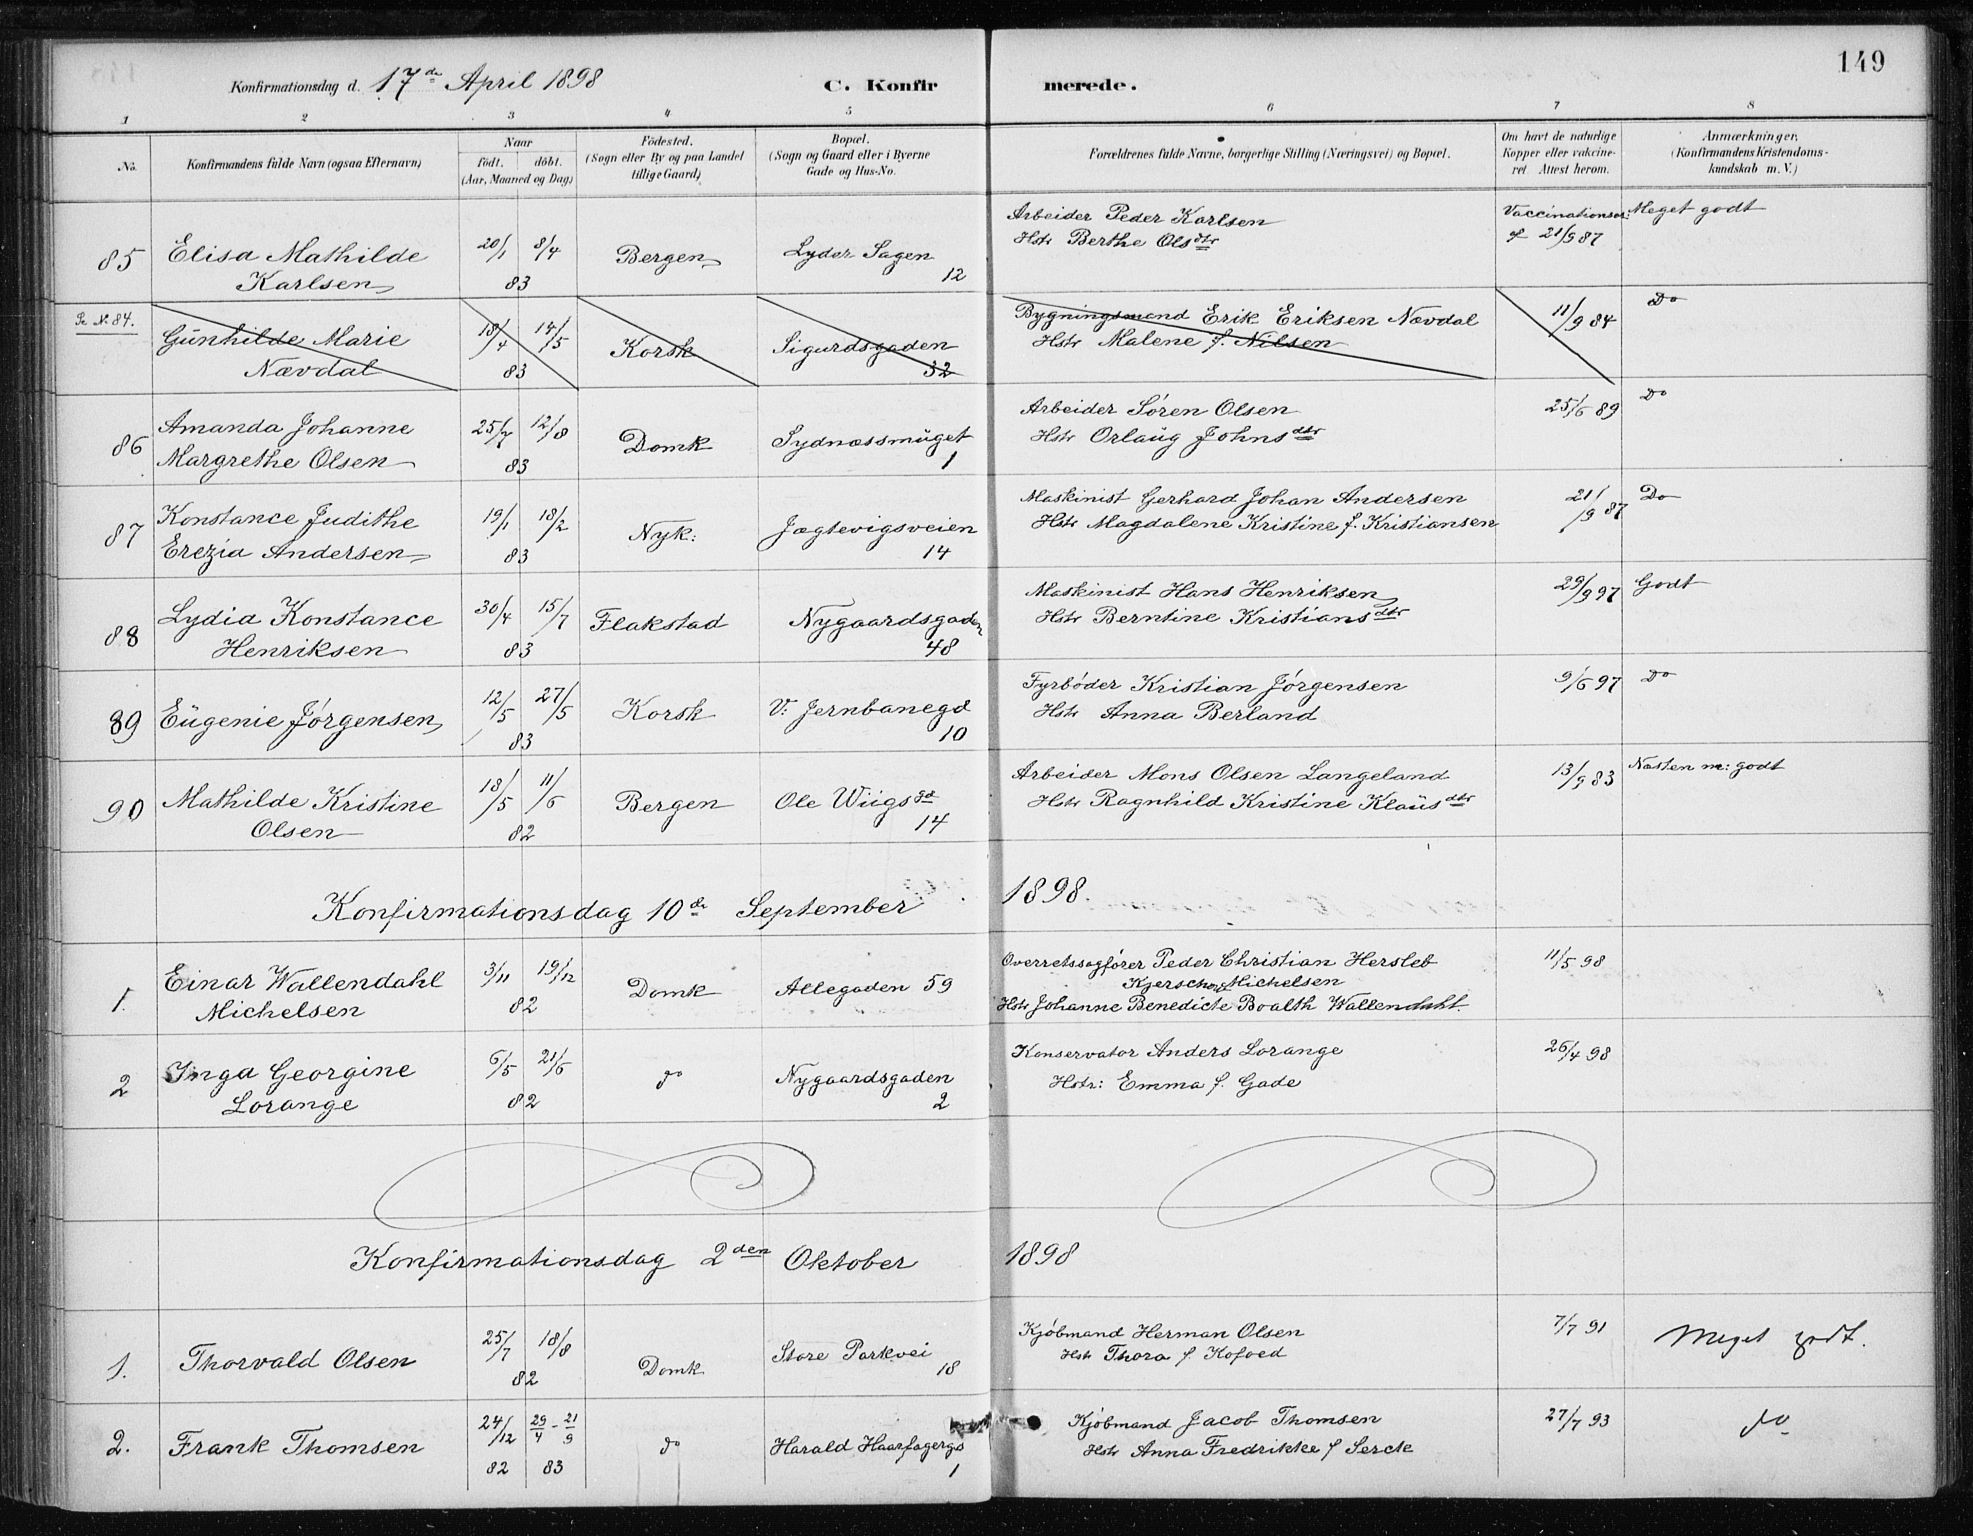 149
Konfirmationsdag d. 17de April 1898
C. Konfirmerede.
1 2 3 4 5 6 7 8
No. Konfirmandens fulde Navn (ogsaa Efternavn) Naar födt. döbt. (Aar, Maaned og Dag) Födested. (Sogn eller By og paa Landet tillige Gaard) Bopæl. (Sogn og Gaard eller i Byerne Gade og Hus-No. Forældrenes fulde Navne, borgerlige Stilling (Næringsvei) og Bopæl. Om havt de naturlige Kopper eller vakcineret Attest herom. Anmærkninger, (Konfirmandens Kristendomskundskab m. V.)
85 Elisa Mathilde Karlsen 20/1 8/4 83 Bergen Lyder Sagen 12 Arbeider Peder Karlsen Hstr Berthe Olsdtr Vaccinationsat: af 21/9 87 Meget godt
Se No 84. Gunhilde Marie Nævdal 18/4 14/5 83 Korsk Sigurdsgaden 32 Bygningsmand Erik Eriksen Nævdal Hstr Malene f. Nilsen 11/9 84 Do
86 Amanda Johanne Margrethe Olsen 25/7 12/8 83 Domk Sydnæssmuget 1 Arbeider Sören Olsen Hstr Orlaug Johnsdtr 25/6 89 Do
87 Konstance Judithe Erezia Andersen 19/1 18/2 83 Nyk: Jægtevigsveien 14 Maskinist Gerhard Johan Andersen Hstr Magdalene Kristine f. Kristiansen 21/9 87 Do
88 Lydia Konstance Henriksen 30/4 15/7 83 Flakstad Nygaardsgaden 48 Maskinist Hans Henriksen Hstr Berntine Kristiansdtr 29/9 97 Godt
89 Eugenie Jörgensen 12/5 27/5 83 Korsk V: Jernbanegd 10 Fyrböder Kristian Jörgensen Hstr Anna Berland 9/6 97 Do
90 Mathilde Kristine Olsen 18/5 11/6 82 Bergen Ole Wiigsgd 14 Arbeider Mons Olsen Langeland Hstr Ragnhild Kristine Klausdtr 13/9 83 Næsten m: godt
Konfirmationsdag 10de September 1898.
1. Einar Wallendahl Michelsen 3/11 19/12 82 Domk Allegaden 59 Overretssagförer Peder Christian Hersleb Kjerschow Michelsen Hstr Johanne Benedicte Boalth Wallendahl. 11/5 98
2 Inga Georgine Lorange 6/5 21/6 82 do Nygaardsgaden 2 Konservator Anders Lorange Hstr: Emma f. Gade 26/4 98
Konfirmationsdag 2den Oktober 1898
1. Thorvald Olsen 25/7 18/8 82 Domk Store Parkvei 18 Kjöbmand Herman Olsen Hstr Thora f Kofoed 7/7 91 Meget godt.
2. Frank Thomsen 24/12 82 29/4 - 21/9 83 do Harald Haarfagergs 1 Kjöbmand Jacob Thomsen Hstr Anna Fredrikke f Serck 27/7 93 do